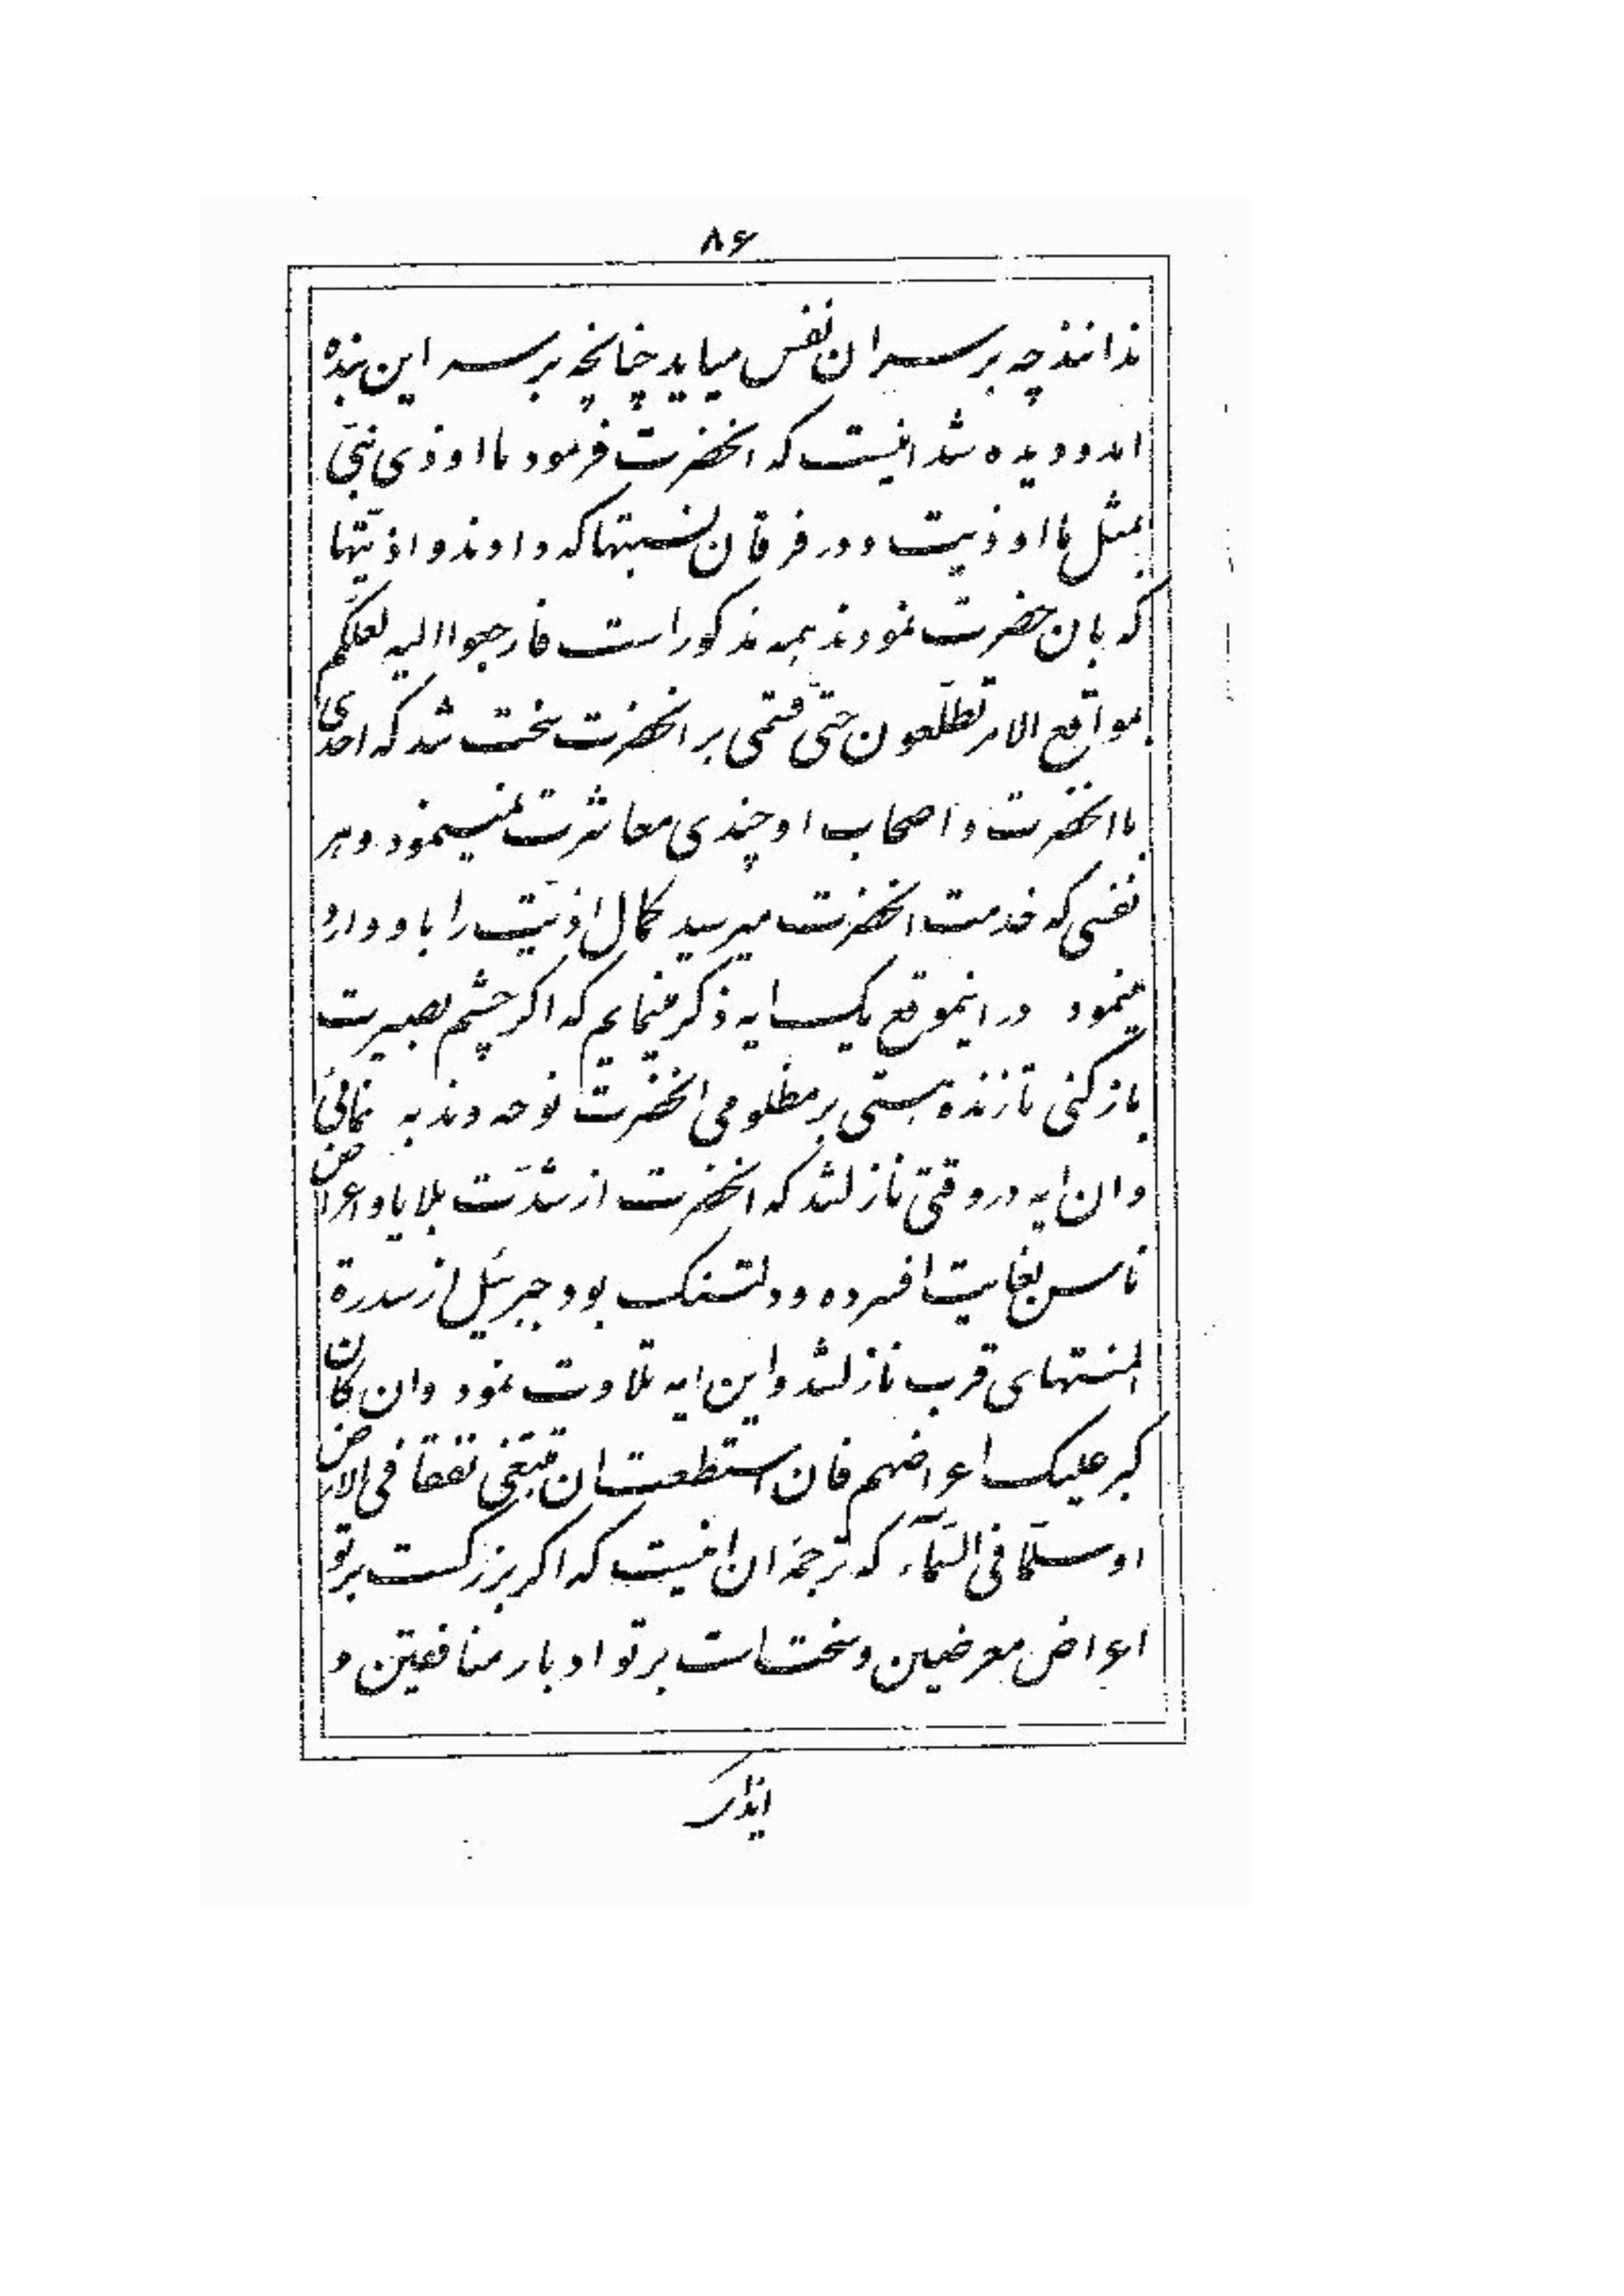 ٨۶
ندانند چه بر سر ان نفس میاید چنانچه بر سر این بنده
امد و دیده شد اینست که انحضرت فرمود ما اوذی نبیّ
بمثل ما اوذیت و در فرقان نسبتها که دادند و اذیّتها
که بان حضرت نمودند همه مذکور است فارجعوا الیه لعلّکم
بمواقع الامر تطّلعون حتّی قسمی بر انحضرت سخت شد که احدی
با انحضرت و اصحاب او چندی معاشرت نمینمود و هر
نفسی که خدمت انحضرت میرسید کمال اذیّت را باو وارد
مینمود در اینموقع یکــ ایه ذکر مینمایم که اکر چشم بصیرت
باز کنی تا زنده هستی بر مظلومی انحضرت نوحه و ندبه نمائی
و ان ایه در وقتی نازلشد که انحضرت از شدّت بلایا و اعراض
ناس بغایت افسرده و دلتنک بود جبرئیل از سدرة
المنتهای قرب نازلشد و این ایه تلاوت نمود و ان کان
کبر علیک اعراضهم فان استطعت ان تبتغی نفقا فی الارض
او سلّما فی السّمآء که ترجمهٔ ان اینست که اکر بزرکست بر تو
اعراض معرضین و سخت است بر تو ادبار منافقین و
ایذای